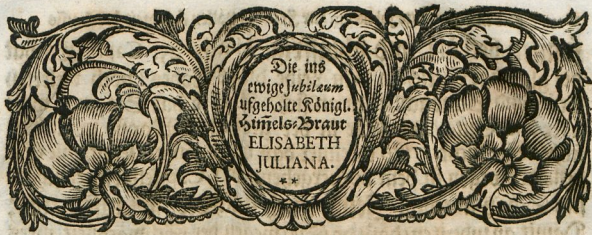 Die ins
ewige Jubilæum
ufgeholte Königl.
Him̃els-Braut
ELISABETH
JULIANA.
**